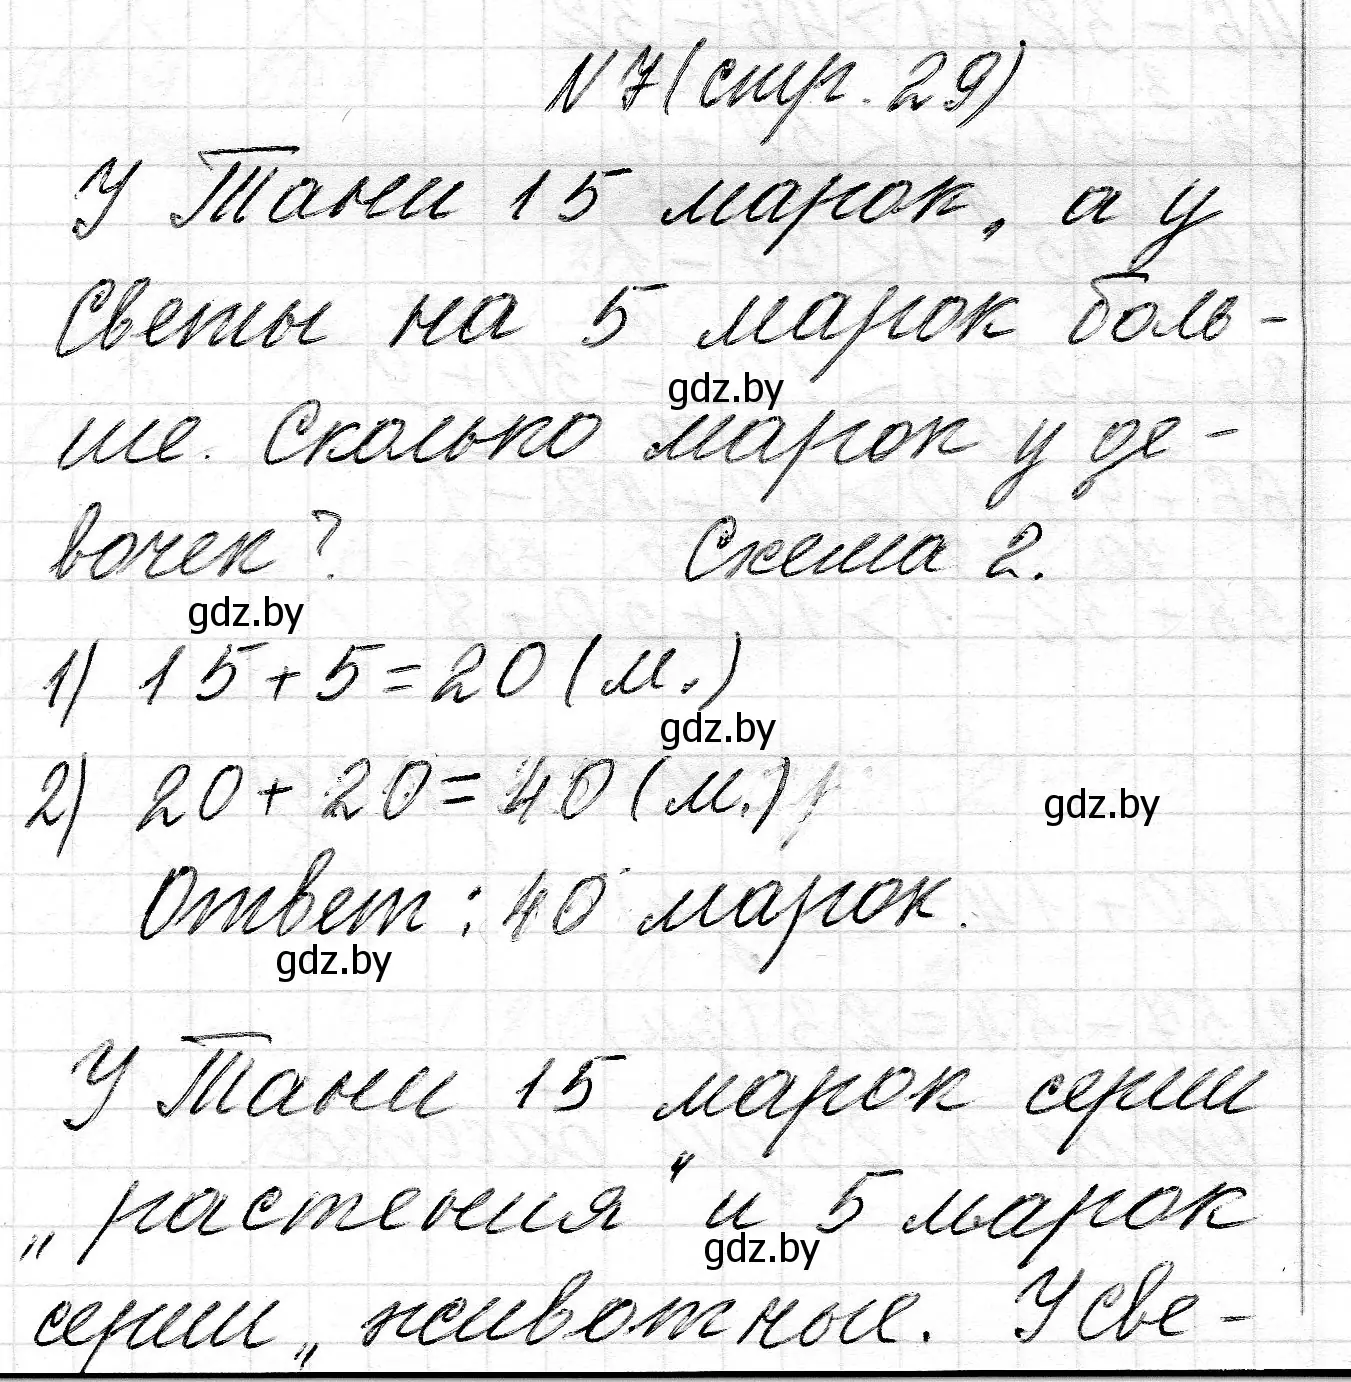 N 7 (стр. 29)
У Тани 15 марок, а у
Светы на 5 марок боль-
gdz.by
ше. Сколько марок у де-
вочек? Схема 2.
gdz.by
1) 15+5=20 (м.)
gdz.by
2) 20+20=40 (м.)
gdz.by
Ответ: 40 марок.
gdz.by
У Тани 15 марок серии
„растения“ и 5 марок
gdz.by
серии „животные. У Све-